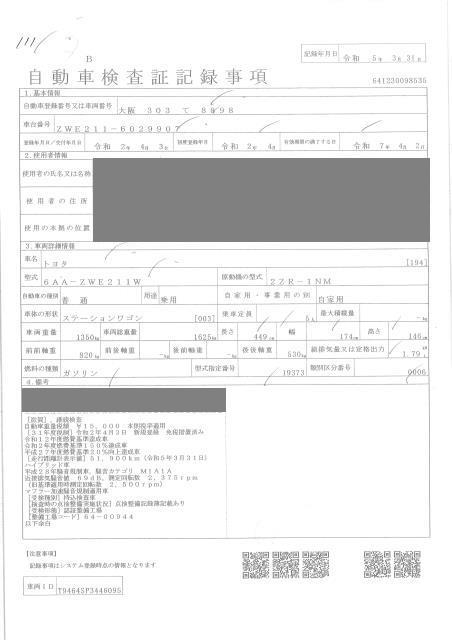 B
記録年月日 令和 5年 3月 31日
自動車検査証記録事項
641230098535
1.基本情報
自動車登録番号又は車両番号 大阪 303 て 8898
車台番号 ZWE211-6029907
登録年月日/交付年月日 令和 2年 4月 3日 初度登録年月 令和 2年 4月 有効期間の満了する日 令和 7年 4月 2日
2.使用者情報
使用者の氏名又は名称
使用者の住所
使用の本拠の位置
3.車両詳細情報
車名 トヨタ [194]
型式 6AA-ZWE211W 原動機の型式 2ZR-1NM
自動車の種別 普通 用途 乗用 自家用・事業用の別 自家用
車体の形状 ステーションワゴン [003] 乗車定員 5人 最大積載量 -kg
車両重量 1350kg 車両総重量 1625kg 長さ 449cm 幅 174cm 高さ 146cm
前前軸重 820kg 前後軸重 -kg 後前軸重 -kg 後後軸重 530kg 総排気量又は定格出力 1.79
燃料の種類 ガソリン 型式指定番号 19373 類別区分番号 0006
4.備考
[滋賀],継続検査
自動車重量税額 ¥15,000 本則税率適用
[31年度税制]令和2年4月3日 新規登録 免税措置済み
令和12年度燃費基準達成車
令和2年度燃費基準150%達成車
平成27年度燃費基準20%向上達成車
[走行距離計表示値]51,900km(令和5年3月31日)
ハイブリッド車
平成28年騒音規制車,騒音カテゴリ M1A1A
近接排気騒音値 69dB,測定回転数 2,375rpm
(旧基準適用時測定回転数 2,500rpm)
マフラー加速騒音規制適用車
[受検種別]持込検査車
[検査時の点検整備実施状況]点検整備記録簿記載あり
[受検形態]認証整備工場
[整備工場コード]64-00944
以下余白
[注意事項]
記録事項はシステム登録時点の情報となります
車両ID T9464SP3446095